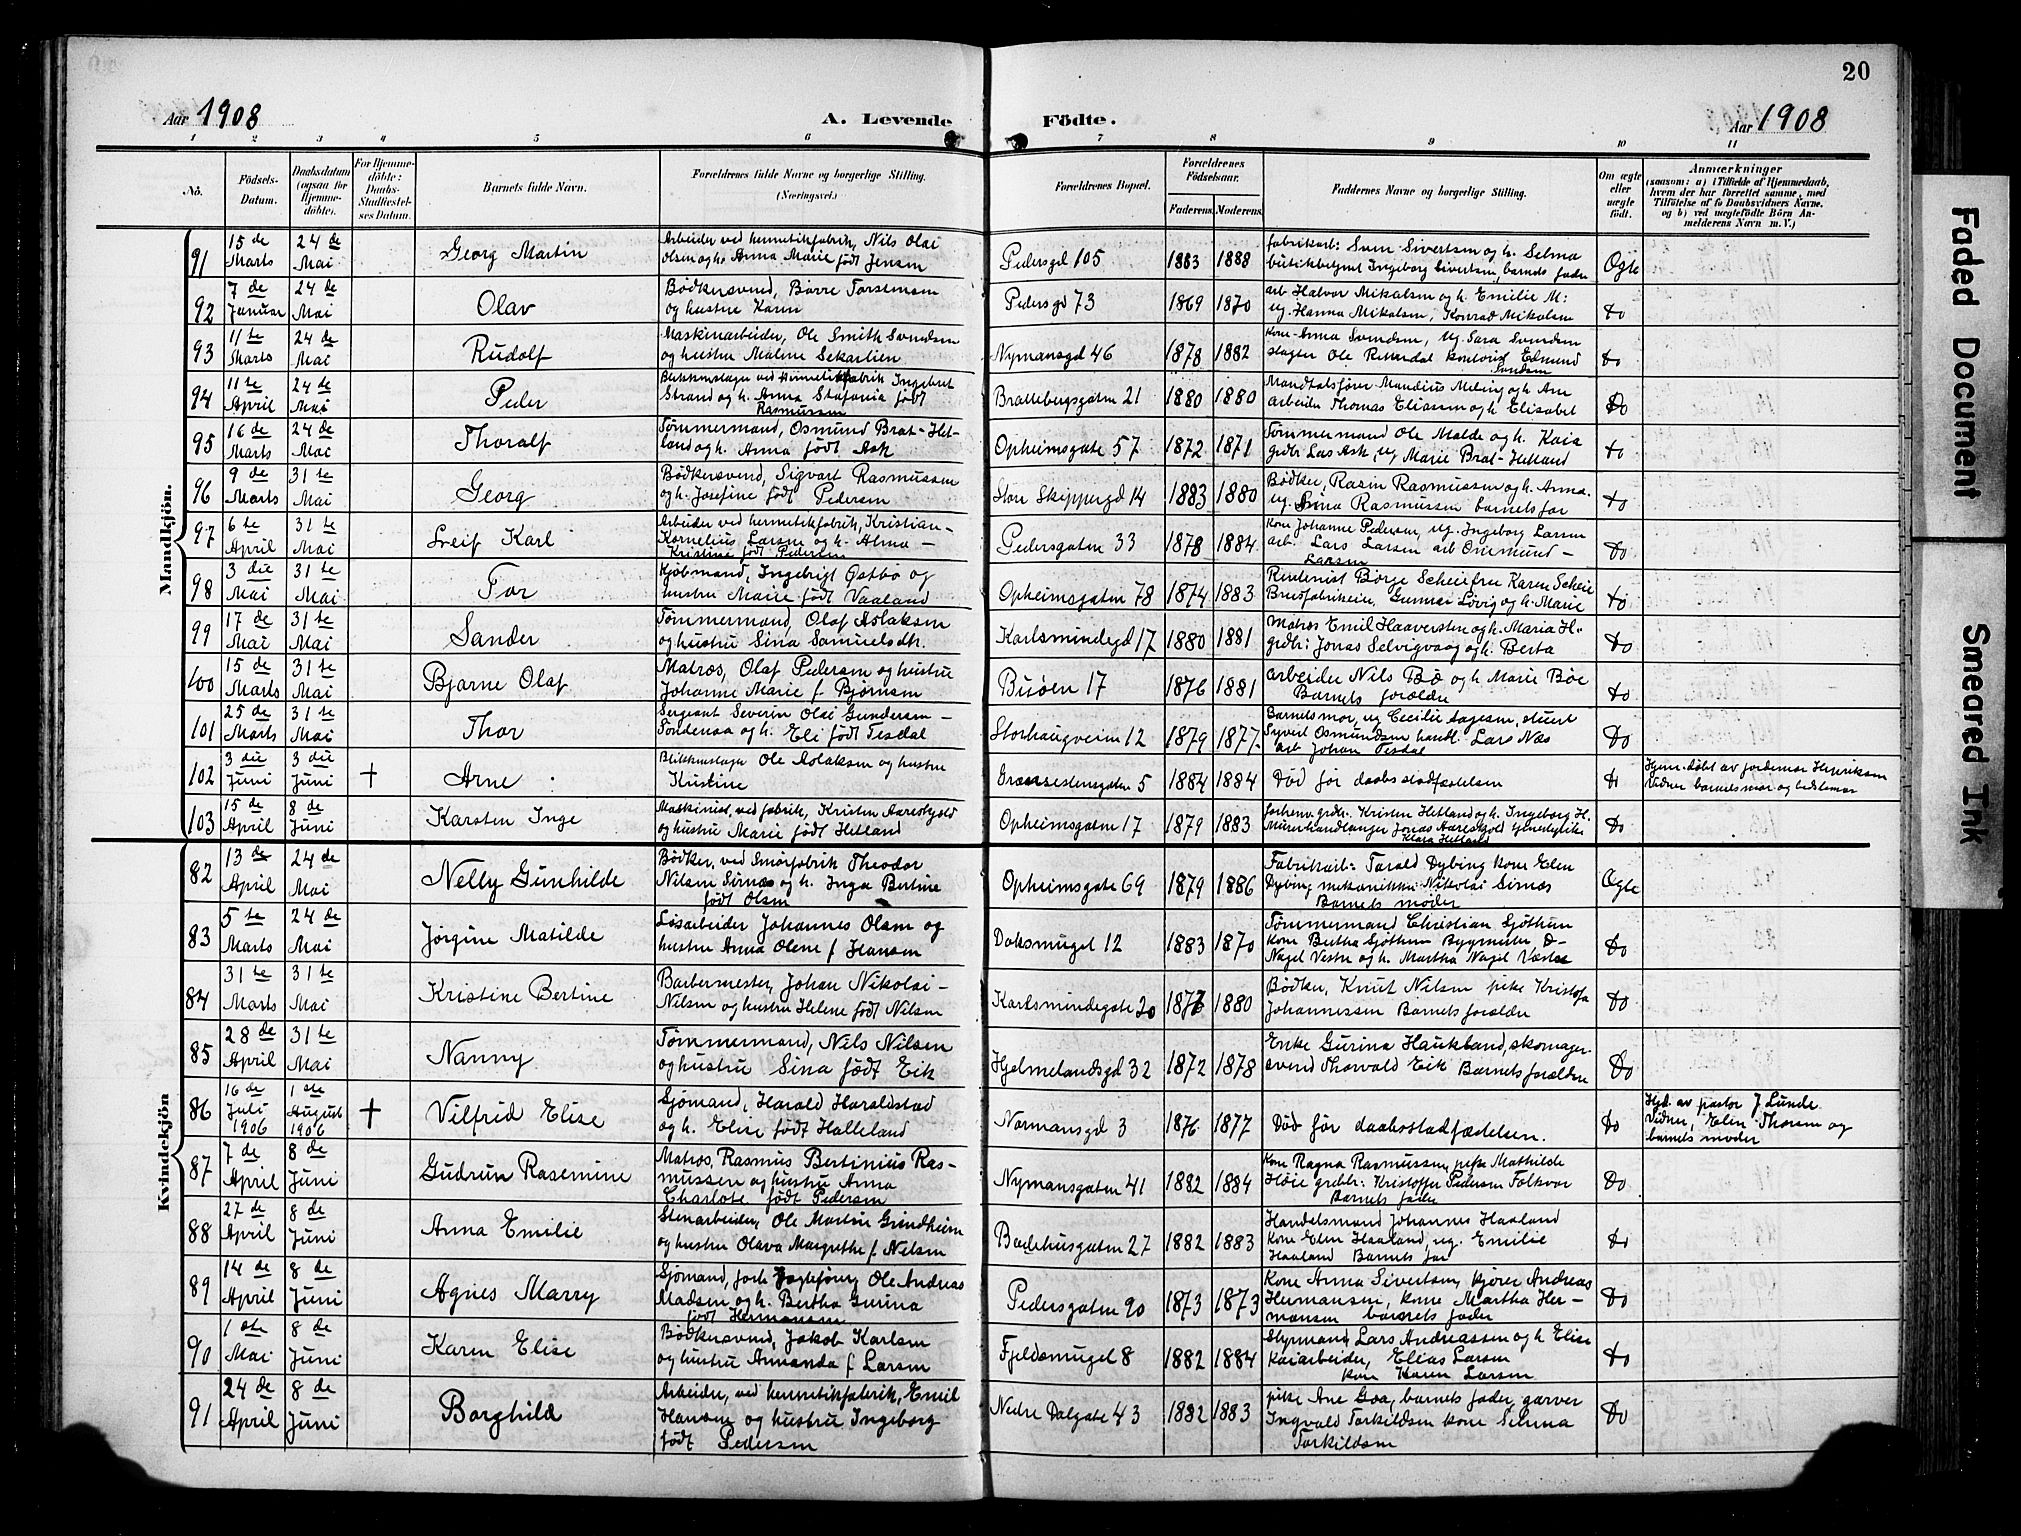 20
Aar 1908
A. Levende
Födte.
Aar 1908
1 2 3 4 5 6 7 8 9 10 11
No.
Födsels-Datum.
Daabsdatum (ogsaa for Hjemmedöbte).
For Hjemmedöbte: Daabs-Stadfæstelses Datum.
Barnets fulde Navn.
Forældrenes fulde Navne og borgerlige Stilling. (Næringsvei.)
Forældrenes Bopæl.
Forældrenes Födselsaar.
Faderens. Moderens.
Faddernes Navne og borgerlige Stilling.
Om ægte eller uægte födt.
Anmærkninger
(saasom: a) i Tilfælde af Hjemmedaab, hvem der har forrettet samme, med Tilföielse af to Daabsvidners Navne, og b) ved uægtefödte Börn Anmelderens Navn m. V.)
Mandkjön.
91 15 de Marts 24 de Mai Georg Martin Arbeider ved hermetikfabrik, Nils Olai Olsen og h. Anna Marie født Jensen Pedersgd 105 1883 1888 fabrikarb: Sven Sivertsen og h. Selma butikbetjent Ingeborg Sivertsen, barnets fader Ogte
92 7 de Januar 24 de Mai Olav Bødkersvend, Børre Torstensen og hustru Karen Pedersgd 73 1869 1870 arb Halvor Mikalsen og h. Emilie M: ug. Hanna Mikalsen, Konrad Mikalsen do
93 11 te Marts 24 de Mai Rudolf Maskinarbeider, Ole Smith Svendsen og hustru Malene Sekarlien Nymansgd 46 1878 1882 Kone Anna Svendsen, ug. Sara Svendsen slagter Ole kontorist Edmund Svendsen do
94 11 te April 24 de Mai Peder Blikkenslager ved hermetikfabrik Ingebret Strand og h. Anna Stefania født Rasmussen Brattebergsgaten 21 1880 1880 Mandtalsfører Mandius Meling og h. Ane arbeider Thomas Eliassen og h. Elisabet Do
95 16 de Marts 24 de Mai Thoralf Tømmermand, Osmund Brat-Hetland og h. Anna født Ask Opheimsgate 57 1872 1871 Tømmermand Ole Malde og h. Kaia grdbr Lars Ask, ug Marie Brat-Hetland do
96 9 de Marts 31 te Mai Georg Bødkersvend, Sigvart Rasmussen og h. Josefine født Pedersen Store Skippergd 14 1883 1880 Bødker, Rasin Rasmussen og h. Anna. ug. Sina Rasmussen barnets far do
97 6 te April 31 te Mai Leif Karl Arbeider ved hermetikfabrik, Kristian-Kornelius Larsen og h. Alma-Kristine født Pedersen Pedersgaten 33 1878 1884 Kone Johanne Pedersen, ug. Ingeborg Larsen arb. Lars Larsen arb Ommund-Larsen Do
98 3 die Mai 31 te Mai Tor Kjøbmand, Ingebrigt Østbø og hustru Marie født Vaaland Opheimsgaten 78 1874 1883 Rentenist Børge Scheie fru Karen Scheie Gunnar Løvig og h. Marie do
99 17 de Mai 31 te Mai Sander Tømmermand, Olaf Aslaksen og hustru Sina Samuelsdtr. Karlsmindegd 17 1880 1881 Matros Emil Haaversten og h. Maria H. grdbr: Jonas Selvigvaag og h. Berta do
100 15 de Marts 31 te Mai Bjarne Olaf Matros, Olaf Pedersen og hustru Johanne Marie f Bjørnsen Buøen 17 1876 1881 arbeider Nils Bø og h Marie Bøe Barnets forældre do
101 25 de Marts 31 te Mai Thor Sergeant Severin Olai Gundersen-Tendenaa og h. Eli født Tesdal Storhaugveien 12 1879 1877 Barnets mor, ug Cecilie Aagesen, stuert Syvert Osmundsen handl. Lars Næs arb Johan Tesdal Do
102 3 die Juni 3 die Juni † Arne Blikkenslager Ole Aslaksen og hustru Kristine Grænsestensgaten 5 1884 1884 Død før daabsstadfæstelsen do Hjem. døbt av jordemor Henriksen Vidner barnets mor og bedstemor
103 15 de April 8 de Juni Karsten Inge Maskinist, ved fabrik, Kristen Aareskjold og hustru Marie født Hetland Opheimsgaten 17 1879 1883 forhenv. grdbr. Kristen Hetland og h. Ingeborg H. Murerhandlanger Jonas Aareskjold tjenestepike Klara Hetland Do
Kvindekjön
82 13 de April 24 de Mai Nelly Gunhilde Bødker, ved Smørfabrik Theodor Nilsen Sirnæs og h. Inga Bertine født Olsen Opheimsgate 69 1879 1886 Fabrikarb: Tarald Dybing kone Elen Dybing mekanikker Nikolai Sirnæs Barnets moder Ogte
83 5 te Marts 24 de Mai Jørgine Matilde Løsarbeider Johannes Olsen og hustru Anna Olene f Hansen Doksmuget 12 1883 1870 Tømmermand Christian Sjøthun kone Bertha Sjøthun Bygmester D- Nagel Vestre og h. Martha Nagel Vestre Do
84 31 te Marts 31 te Mai Kristine Bertine Barbermester, Johan Nikolai-Nilsen og hustru Helene født Nilsen Karlsmindegate 20 1877 1880 Bødker, Knut Nilsen pike Kristofa Johannessen Barnets forældre Do
85 28 de April 31 te Mai Nanny Tømmermand, Nils Nilsen og hustru Sina født Eik Hjelmelandsgd 32 1872 1878 Enke Gurina Haukland, skomagersvend Thorvald Eik Barnets forældre Do
86 16 de Juli 1906 1 ste August 1906 † Vilfrid Elise Sjømand, Harald Haraldstad og h. Elise født Halleland Normansgd 3 1876 1877 Død før daabsstadfæstelsen. Do Hjd. av pastor J Lunde Vidner, Elen Thorsen og barnets moder
87 7 de April 8 de Juni Gudrun Rasemine Matros, Rasmus Bertinius Rasmussen og hustru Anna Charlote født Pedersen Nymansgaten 41 1882 1884 Kone Ragna Rasmussen, pike Mathilde Høie grdbr: Kristoffer Pedersen Folkvor Barnets fader Do
88 27 de April 8 de Juni Anna Emilie Stenarbeider, Ole Martin Grindheim og hustru Olava Margrethe f Nilsen Badehusgaten 27 1882 1883 Handelsmand Johannes Haaland Kone Elen Haaland, ug. Emilie Haaland Barnets far do
89 14 de April 8 de Juni Agnes Marry Sjømand, forh Jagtefører Ole Andreas Madsen og h. Bertha Gurina født Hermansen Pedersgaten 90 1873 1873 Kone Anna Sivertsen, kjører Andreas Hermansen, kone Martha Hermansen barnets fader Do
90 1 ste Mai 8 de Juni Karen Elise Bødkersvend, Jakob Karlsen og hustru Amanda f Larsen Fjeldsmuget 8 1882 1884 Styrmand, Lars Andreassen og h Elise Kaiarbeider, Elias Larsen kone Karen Larsen do
91 24 de April 8 de Juni Borghild Arbeider, ved hermetikfabrik, Emil Hansen og hustru Ingeborg født Pedersen Nedre Dalgate 43 1882 1883 pike Ane Goa, barnets fader, garver Ingvald Torkildsen kone Selma Torkildsen Do
Faded Document
Smeared Ink